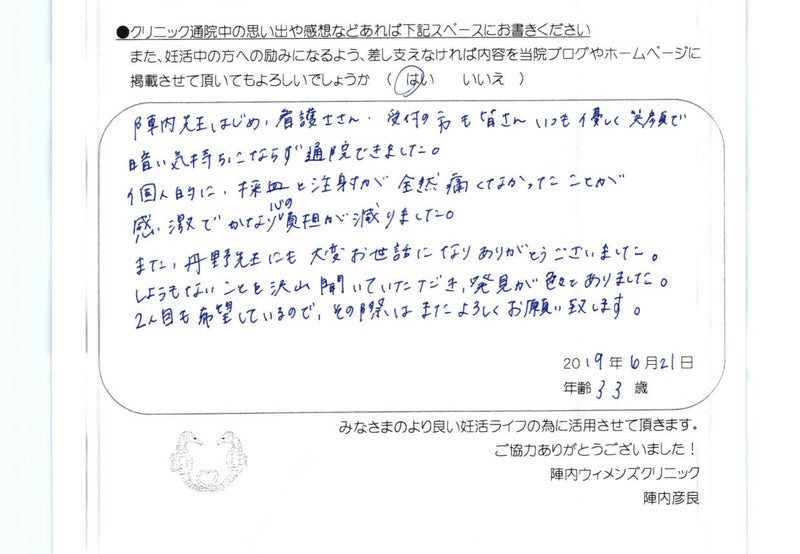 ●クリニック通院中の思い出や感想などあれば下記スペースにお書きください
また、妊活中の方への励みになるよう、差し支えなければ内容を当院ブログやホームページに
掲載させて頂いてもよろしいでしょうか （ はい いいえ ）
陣内先生はじめ、看護士さん・受付の方も皆さんいつも優しく笑顔で
暗い気持ちにならず通院できました。
個人的に、採血と注射が全然痛くなかったことが
感激でかなり心の負担が減りました。
また、丹野先生にも大変お世話になりありがとうございました。
しょうもないことを沢山聞いていただき、発見が色々とありました。
2人目も希望しているので、その際はまたよろしくお願い致します。
2019年6月21日
年齢33歳
みなさまのより良い妊活ライフの為に活用させて頂きます。
ご協力ありがとうございました！
陣内ウィメンズクリニック
陣内彦良